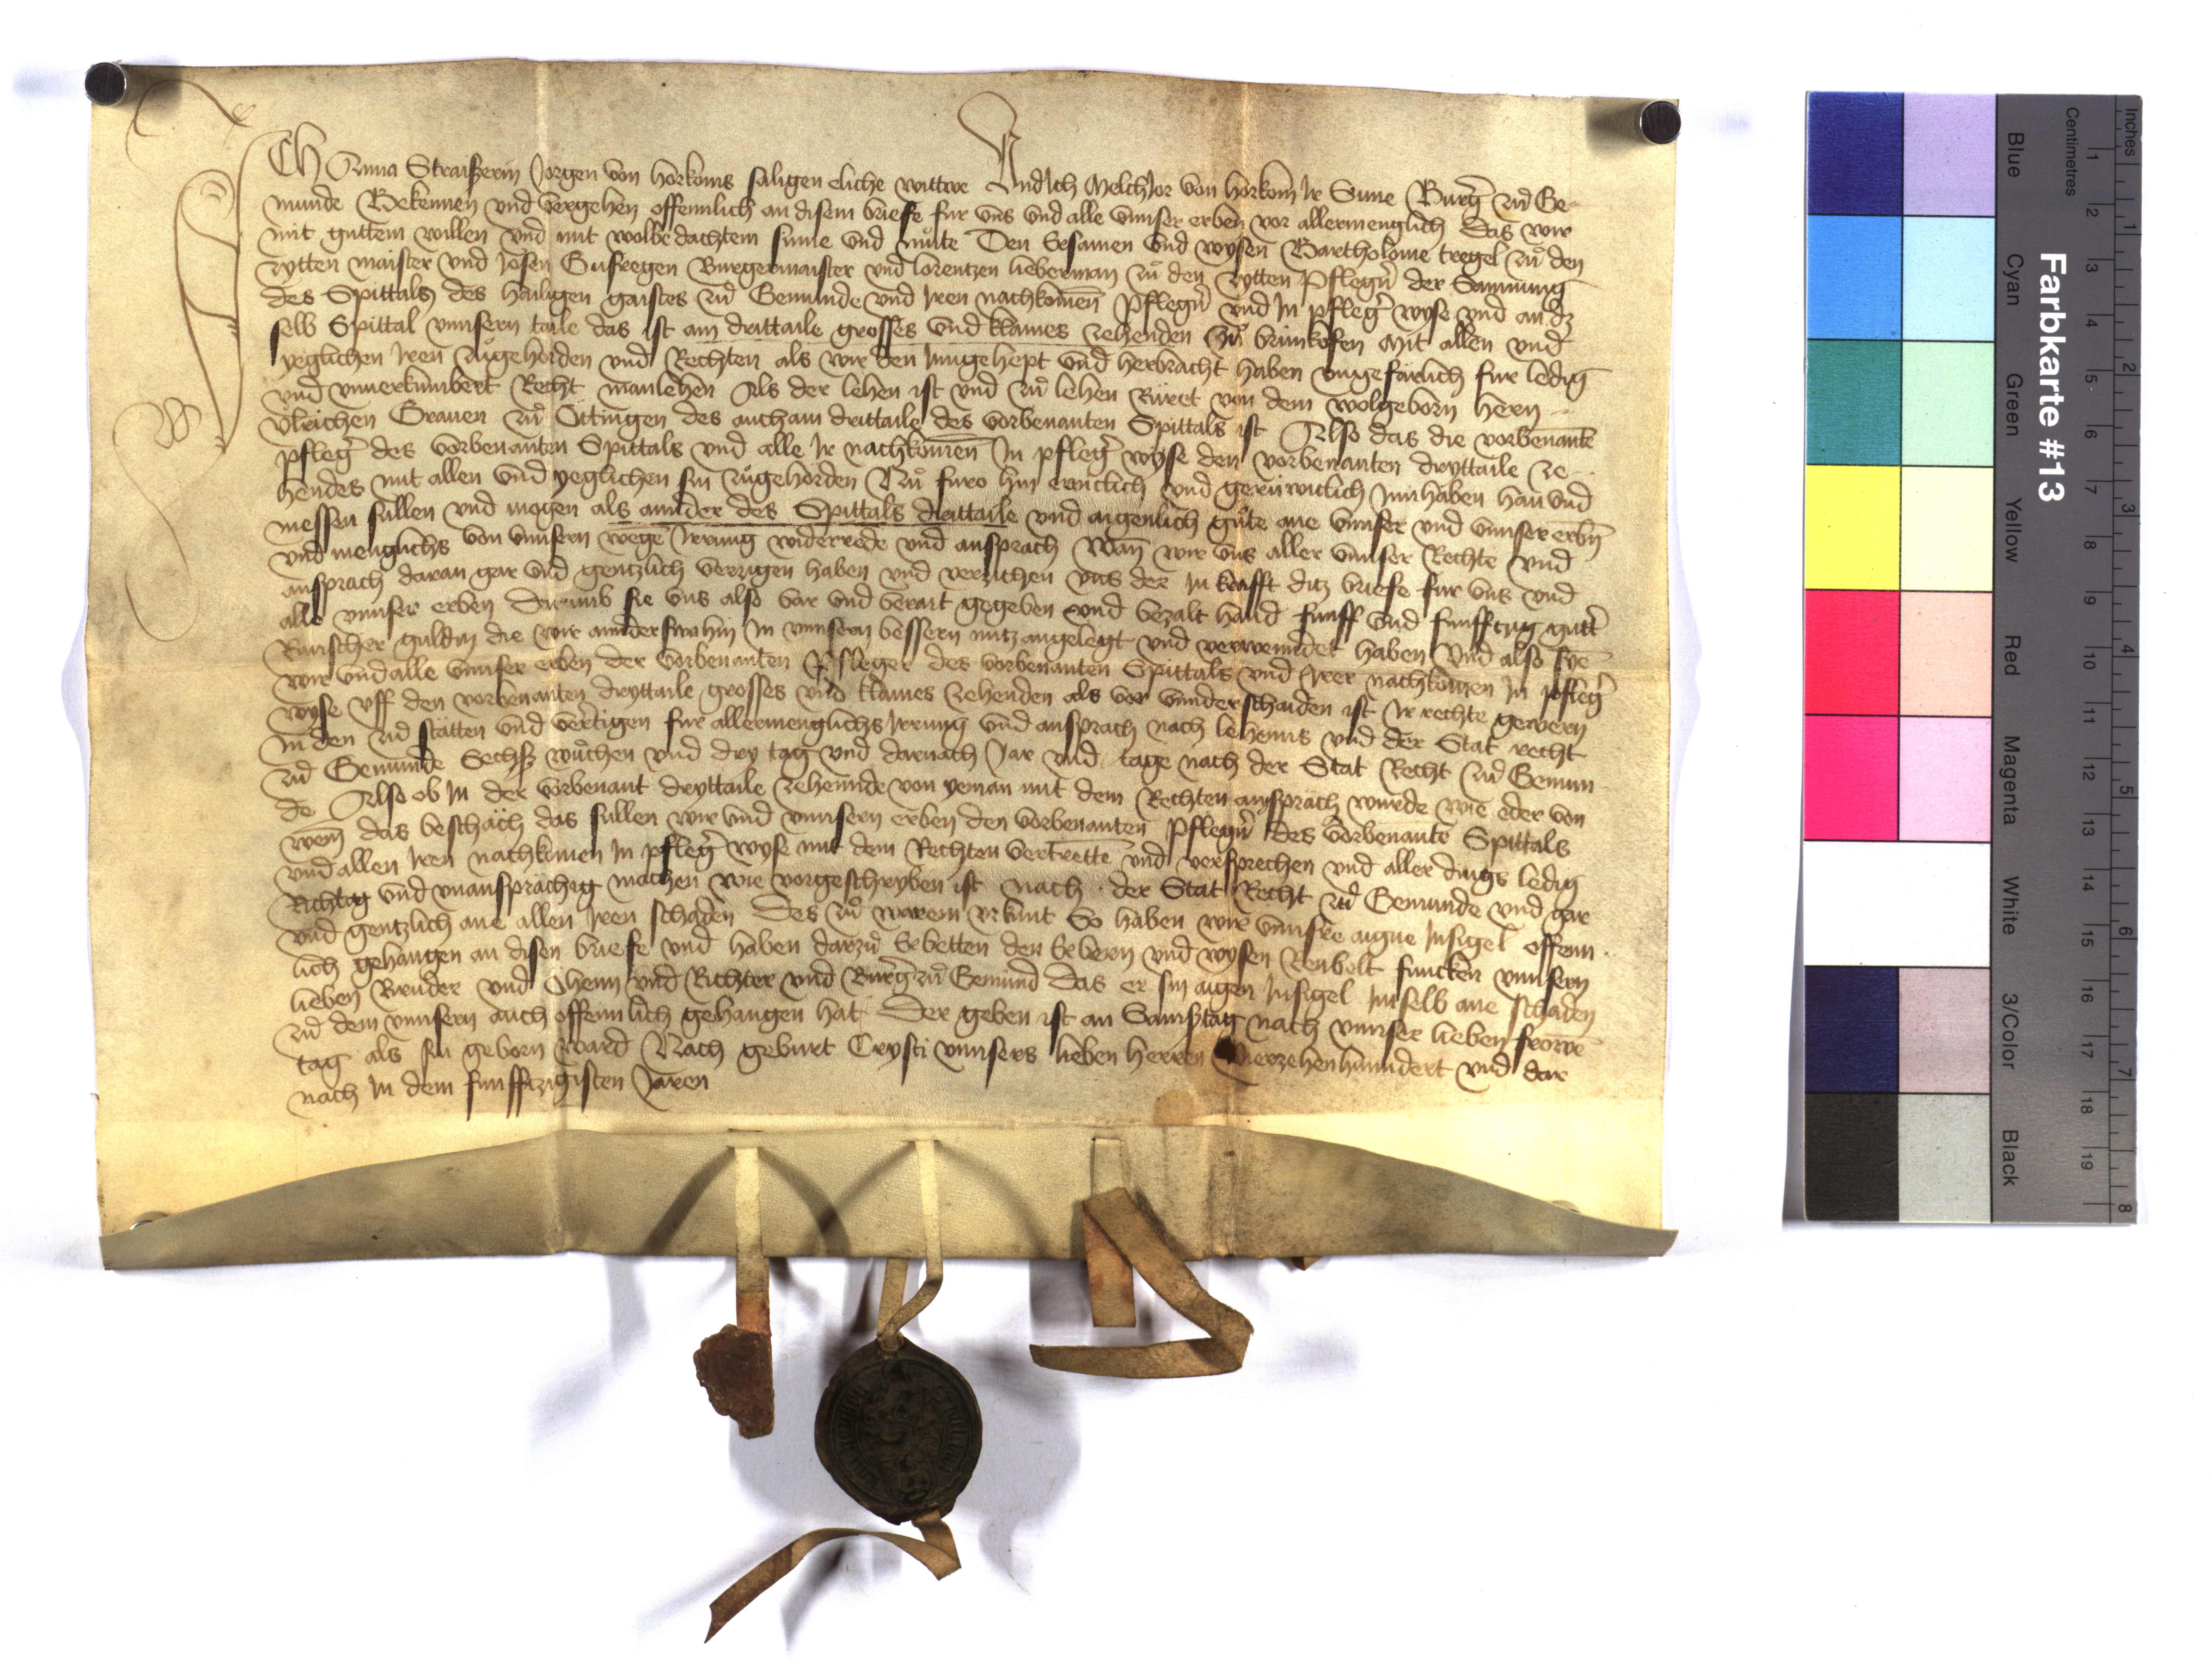 ICH Anna Straißerin Jorgen von horkoms saligen eliche wittwe Und Ich Melchior von horkom Ir Sune Burg̃ zu Ge-
munde Bekennen und vergehen offennlich an disem briefe fur uns und alle unnser erben vor allermenglich das wir
mit guttem willen und mit wolbedachtem sinne und mute Den Ersamen und wysen Bartholome tregel zu den
zytten maister und Josen Gufregen Burgermaister und lorentzen lieberman zu den zytten Pfleg̃n der Samnung
des Spittals des hailigen gaistes zu Gemunde und Iren nachkomen Pfleg̃n und In pfleg̃ wyse und an dz
selb Spittal unnsern taile das ist ain drittaile grosses und klaines zehenden zu brinkofen Mit allen und
yeglichen Iren zugehorden und Rechten als wir den Inngehept und herbracht haben ungefarlich fur ledig
und unnerkumbert Recht manlehen Als der lehen ist und zu lehen Ruret von dem wolgeborn hern
ulrichen Grauen zu Ottingen des auch ain drittaile des vorbenanten Spittals ist Also das die vorbenante
pfleg̃ des vorbenanten Spittals und alle Ir nachkomen In pfleg̃ wyse den vorbenanten dryttaile ze-
hendes mit allen und yeglichen sin zugehorden Nu furo hin ewiclich und geruwiclich Innhaben han und
niessen sullen und mogen als annder des Spittals drittaile und aigenlich gute ane unnser und unnser erbn̄
und menglichs von unnsern wege Irrung widerrede und ansprach Wan wir uns aller unnser Rechte und
ansprach daran gar und gentzlich verzigen haben und verzichen uns der In krafft ditz briefs fur uns und
alle unnser erben Darumb sie uns also bar und berait gegeben und bezalt hand funff und funfftzig gutt̃
Rinischer guldin die wir annderswahin In unnsern bessern nutz angelegt und verwenndet haben Und also syē
wir und alle unnser erben der vorbenanten Pfleger des vorbenanten Spittals und Irer nachkomen In pfleg̃
wyse uff den vorbenanten dryttaile grosses und klaines zehenden als vor unnderschaiden ist Ir rechte gewern
In den zu statten und vertigen fur allermenglichs Irrung und ansprach nach lehenns und der Stat recht
zu Gemunde Sechß wuchen und dry tag und darnach Jar und tage nach der Stat Recht zu Gemun-
de Also ob In der vorbenant dryttaile zehennde von yeman mit dem Rechten ansprach wurde wie oder von
wem das beschach das sullen wir und unnsern erben den vorbenanten Pfleg̃n des vorbenante Spittals
und allen Iren nachkomen In pfleg̃ wyse mit dem Rechten vertrette und versprechen und aller dings ledig
Richtig und unansprachig machen wie vorgeschryben ist nach der Stat Recht zu Gemunde und gar
und gentzlich ane allen Iren schaden Des zu warem urkunt So haben wir unnsere aigne Insigel offenn-
lich gehangen an disen briefe und haben darzu Erbetten den Erbern und wysen Renbolt funcken unnsern
lieben Bruder und Ohem und Richter und Burg̃ zu Gemund das er sin aigen Insigel Im selb ane schaden
zu dem unnsern auch offennlich gehangen hat Der geben ist an Samßtag nach unnser lieben frowē
tag als sin geborn ward Nach geburt Crysti unnsers lieben herren Vierzehenhunndert und dar
nach In dem funfftzigisten Jaren
Farbkarte #13
Inches
Centimetres
1 2 3 4 5 6 7 8
1 2 3 4 5 6 7 8 9 10 11 12 13 14 15 16 17 18 19
Blue
Cyan
Green
Yellow
Red
Magenta
White
3/Color
Black